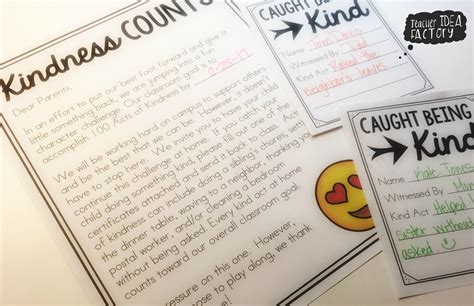 Kindness COUNTS
Dear Parents,
In an effort to put our best foot forward and give a
little something back, we are jumping into a fun
character challenge. Our classroom goal is to
accomplish 100 Acts of Kindness by 2-25-17
We will be working hard on campus to support others
and be the best that we can be. However, it doesn't
have to stop here. We invite you to have your child
continue this challenge at home. If you catch your
child doing something kind, please fill out one of the
certificates attached and send it back to class. Acts
of kindness can include doing a sibling's chores, setting
the dinner table, waving to a neighbor, thanking
postal worker, and/or cleaning a bedroom
without being asked. Every kind act at home
counts toward our overall classroom goal.
pressure on this one. However,
ose to play along, we thank
CAUGHT BEING
Kind
Name
Witnessed By Dad
Kind Act Raked the
neighbors leaves
CAUGHT BEING
Kind
Name Kate Jones
Witnessed By
Kind Act Helped
sister without
asked
Teacher IDEA
FACTORY